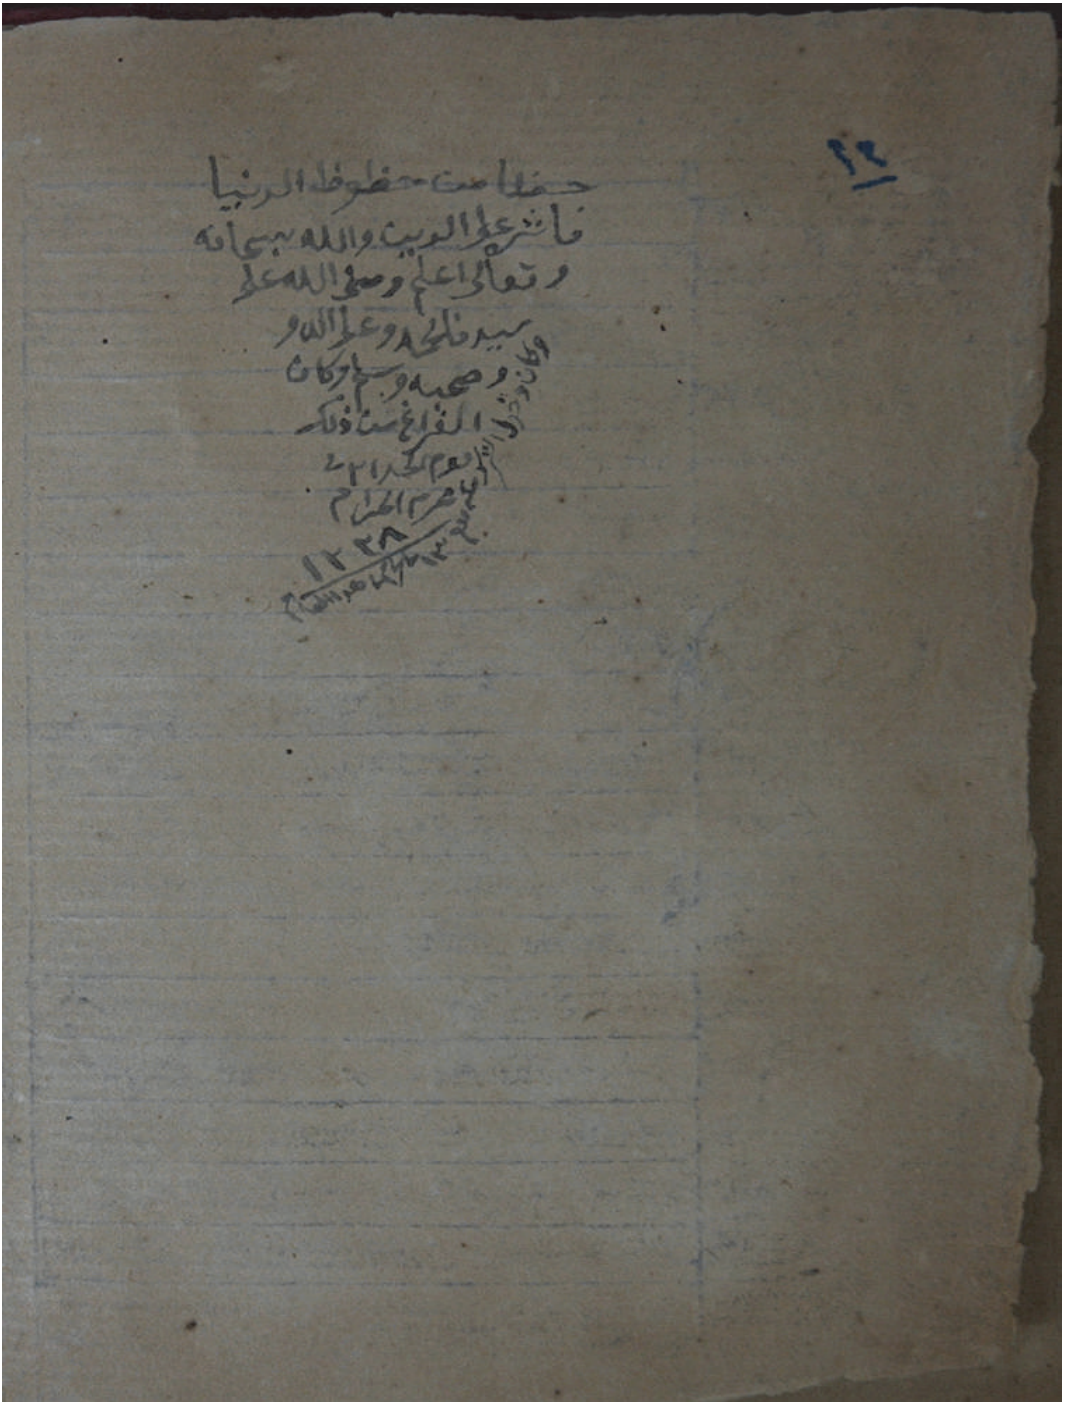 ١٢
حظا من حظوظ الدنيا
فاشر على الدين والله سبحانه
وتعالى اعلم وصلى الله على
سيدنا محمد وعلى اله و
وصحبه وسلم وكان
الفراغ من ذلك
يوم الاحد ٢١
محرم الحرام
١٣٣٨
وكان